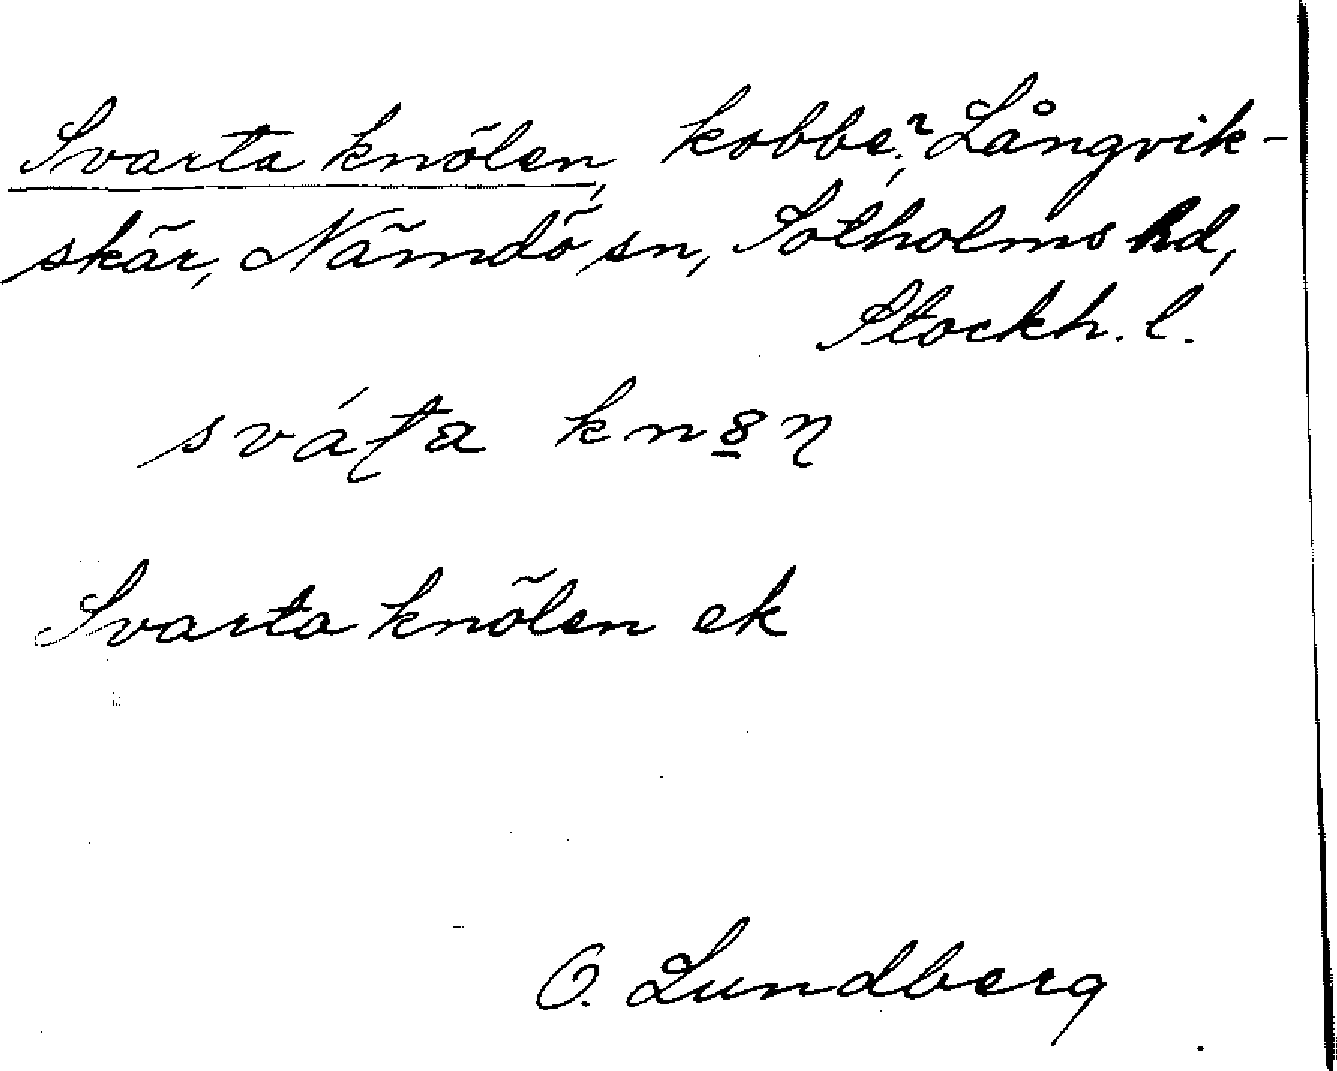 Svarta knölen, kobbe?, Långvik-
skär, Nämdö sn, Sotholms hd,
Stockh. l.
Svarta knölen ek
O. Lundberg